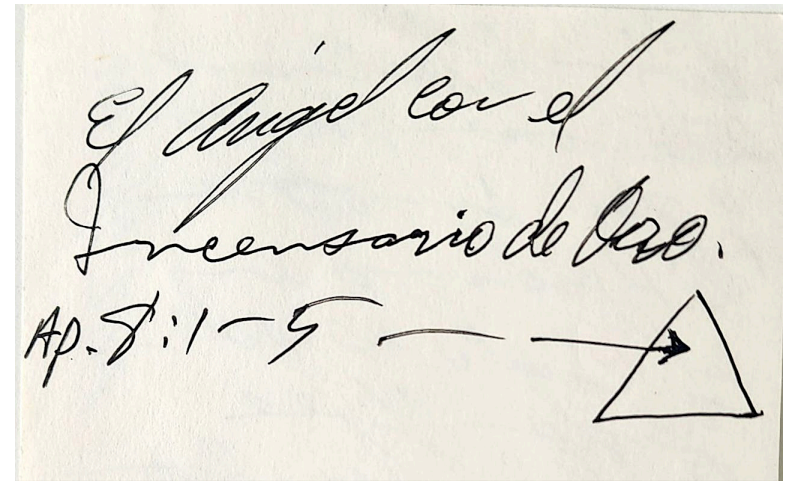 El Ángel con el
Incensario de Oro.
Ap. 8:1-5